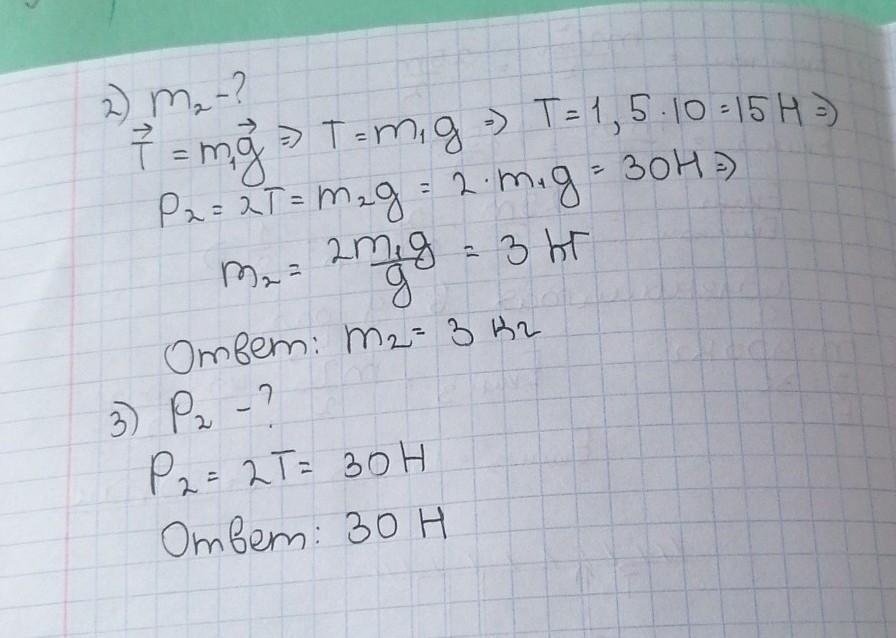 2) m₂ - ?
T⃗ = m₁g⃗ ⇒ T = m₁g ⇒ T = 1,5 · 10 = 15 Н ⇒
P₂ = 2T = m₂g = 2 · m₁g = 30 Н ⇒
m₂ = 2m₁g/g = 3 кг
Ответ: m₂ = 3 кг
3) P₂ - ?
P₂ = 2T = 30 Н
Ответ: 30 Н